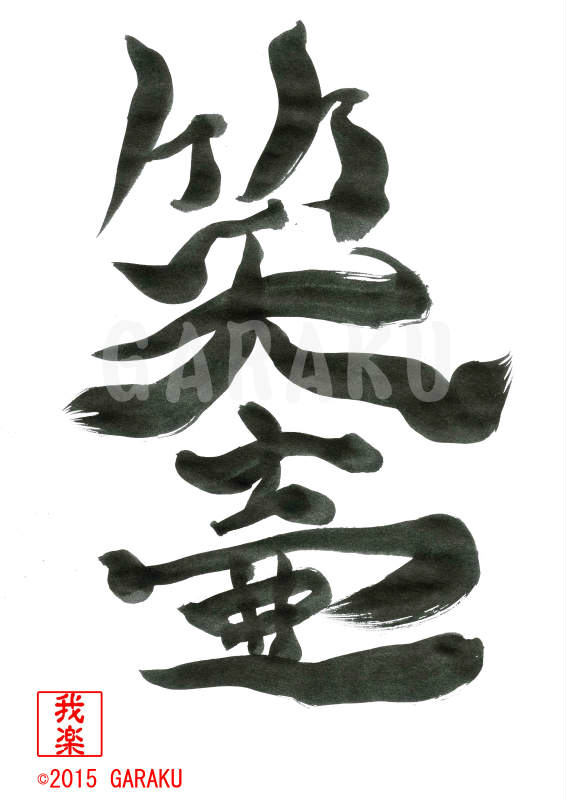 笑壷
GARAKU
我楽
©2015 GARAKU